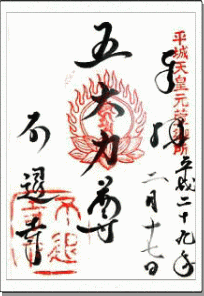 平城天皇元萱御所
奉拝
平成二十九年
二月十七日
五大力尊
不退寺